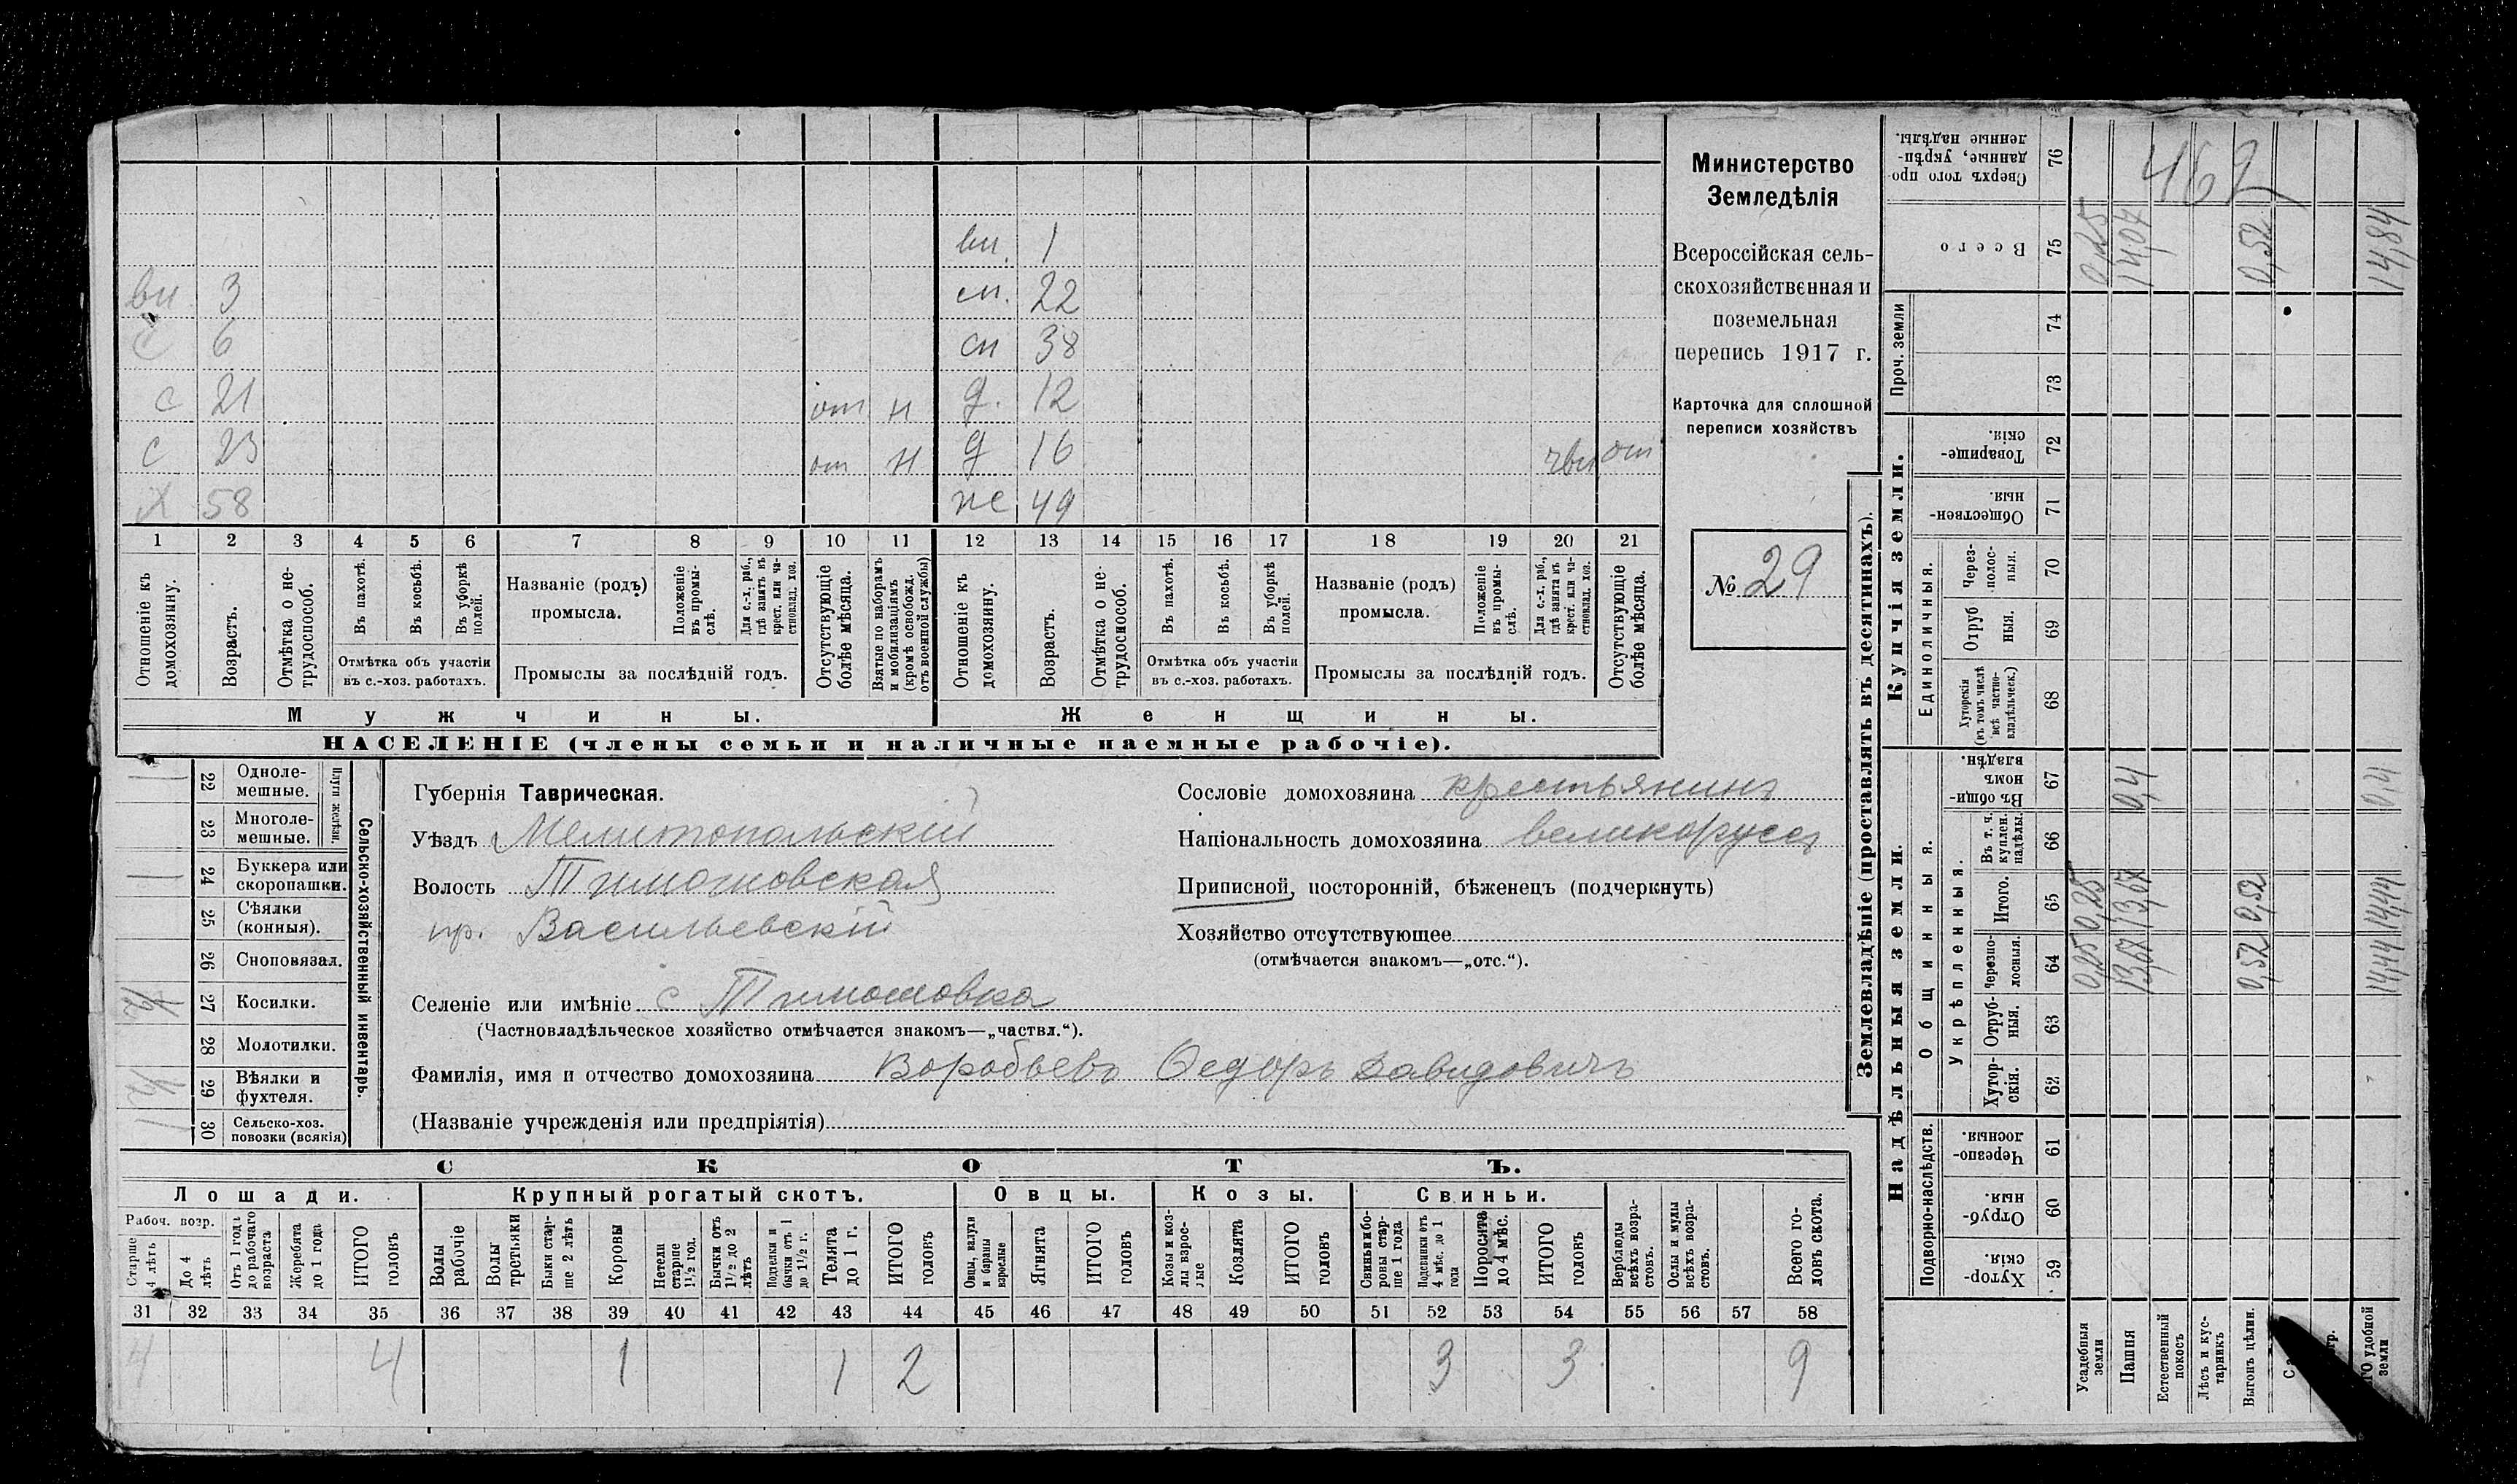 Министерство
Земледѣлія
Всероссійская сель-
скохозяйственная и
поземельная
перепись 1917 г.
Карточка для сплошной
переписи хозяйствъ
№ 29
вн. 1
вн 3 сн. 22
с 6 сн 38
с 21 от н д. 12
с 23 от н д 16 от
х 58 ж 49
1 2 3 4 5 6 7 8 9 10 11 12 13 14 15 16 17 18 19 20 21
Отношеніе къ домохозяину.
Возрастъ.
Отмѣтка о не-трудоспособ.
Въ пахотѣ.
Въ косьбѣ.
Въ уборкѣ полей.
Отмѣтка объ участіи
въ с.-хоз. работахъ.
Названіе (родъ)
промысла.
Положеніе въ промы-слѣ.
Для с.-х. раб., гдѣ занятъ въ крест. или ча-стновлад. хоз.
Промыслы за послѣдній годъ.
Отсутствующіе болѣе мѣсяца.
Взятые по наборамъ и мобилизаціямъ (кромѣ освобожд. отъ военной службы)
Отношеніе къ домохозяину.
Возрастъ.
Отмѣтка о не-трудоспособ.
Въ пахотѣ.
Въ косьбѣ.
Въ уборкѣ полей.
Отмѣтка объ участіи
въ с.-хоз. работахъ.
Названіе (родъ)
промысла.
Положеніе въ промы-слѣ.
Для с.-х. раб., гдѣ занята въ крест. или ча-стновлад. хоз.
Промыслы за послѣдній годъ.
Отсутствующіе болѣе мѣсяца.
Мужчины. Женщины.
НАСЕЛЕНІЕ (члены семьи и наличные наемные рабочіе).
Сельско-хозяйственный инвентарь.
Плуги желѣзн.
22 Одноле-мешные. 1
23 Многоле-мешные.
24 Буккера или скоропашки. 1
25 Сѣялки (конныя).
26 Сноповязал.
27 Косилки. 1/2
28 Молотилки.
29 Вѣялки и фухтеля. 1/2
30 Сельско-хоз. повозки (всякія) 1
Губернія Таврическая.
Уѣздъ Мелитопольскій
Волость Тимошовская
пр. Васильевскій
Селеніе или имѣніе с Тимошовка
(Частновладѣльческое хозяйство отмѣчается знакомъ—„частвл.“).
Фамилія, имя и отчество домохозяина Воробьевъ Федоръ Давидовичъ
(Названіе учрежденія или предпріятія)
Сословіе домохозяина крестьянинъ
Національность домохозяина великоруссъ
Приписной, посторонній, бѣженецъ (подчеркнуть)
Хозяйство отсутствующее
(отмѣчается знакомъ—„отс.“).
СКОТЪ.
Лошади. Крупный рогатый скотъ. Овцы. Козы. Свиньи.
Рабоч. возр.
Старше 4 лѣтъ
До 4 лѣтъ
Отъ 1 года до рабочаго возраста
Жеребята до 1 года
ИТОГО головъ
Волы рабочіе
Волы третьяки
Быки стар-ше 2 лѣтъ
Коровы
Нетели старше 1½ год.
Бычки отъ 1½ до 2 лѣтъ
Подтелки и бычки отъ 1 до 1½ г.
Телята до 1 г.
ИТОГО головъ
Овцы, валухи и бараны взрослые
Ягнята
ИТОГО головъ
Козы и коз-лы взрос-лые
Козлята
ИТОГО головъ
Свиньи и бо-ровы стар-ше 1 года
Подсвинки отъ 4 мѣс. до 1 года
Поросята до 4 мѣс.
ИТОГО головъ
Верблюды всѣхъ возра-стовъ.
Ослы и мулы всѣхъ возра-стовъ.
Всего го-ловъ скота.
31 32 33 34 35 36 37 38 39 40 41 42 43 44 45 46 47 48 49 50 51 52 53 54 55 56 57 58
4 4 1 1 2 3 3 9
Землевладѣніе (проставлять въ десятинахъ).
Купчія земли.
Надѣльныя земли.
Сверхъ того про-данные, укрѣп-ленные надѣлы. 76 462
Всего 75 0,25 14,07 0,52 14,84
Проч. земли 74 73
Товарище-скія. 72
Обществен-ныя 71
Единоличныя.
Через-полос-ныя. 70
Отруб ныя. 69
Хуторскія (въ томъ числѣ всѣ частно-владѣльческ.) 68
Общинныя.
Въ общи-номъ владѣн. 67 0,4 0,4
Укрѣпленныя.
Въ т. ч. куплен. надѣлы. 66
Итого. 65 0,25 13,67 0,52 14,44
Черезпо-лосныя. 64 0,25 13,67 0,52 14,44
Отруб-ныя. 63
Хутор-скія. 62
Подворно-наслѣдств.
Черезпо-лосныя. 61
Отруб-ныя 60
Хутор-скія. 59
Усадебныя земли
Пашня
Естественный покосъ
Лѣсъ и кус-тарникъ
Выгонъ цѣлин.
удобной земли